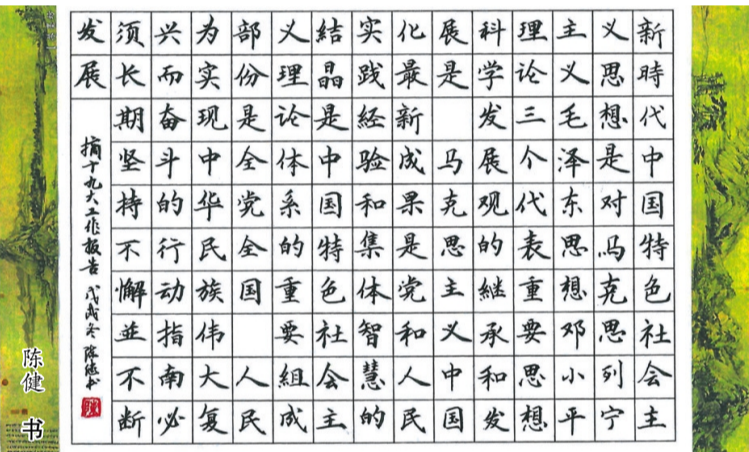 新時代中国特色社会主
义思想是对马克思列宁
主义毛泽东思想邓小平
理论三个代表重要思想
科学发展观的継承和发
展是 马克思主义中国
化最新成果是党和人民
实践経验和集体智慧的
結晶是中国特色社会主
义理论体系的重要組成
部份是全党全国 人民
为实现中华民族伟大复
兴而奋斗的行动指南必
须长期坚持不懈並不断
发展
摘十九大工作报告 戊戌冬 陈健书
陈健 书